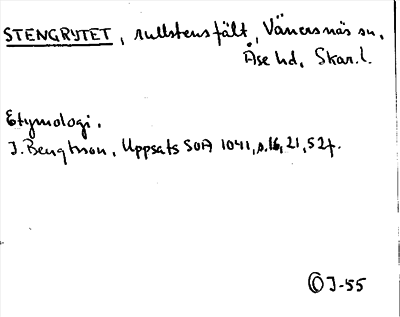 STENGRYTET, rullstensfält, Vänersnäs sn,
Åse hd, Skar.l.
Etymologi.
J. Bengtsson, Uppsats SOA 1041, s.16, 21, 52f.
ⓒJ-55